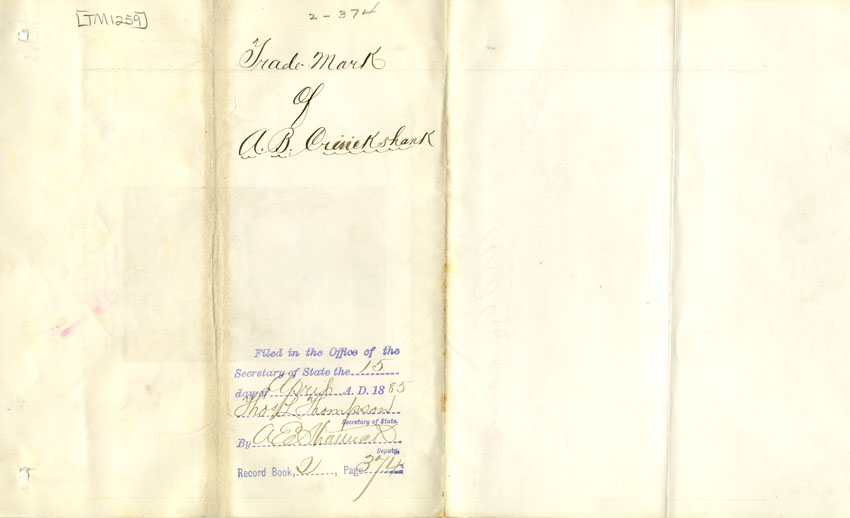 [TM1259]
2-374
Trade Mark
of
A. B. Cruickshank
Filed in the Office of the
Secretary of State the 15
day of April A. D. 1885
Thos L Thompson
Secretary of State.
By A E
Deputy.
Record Book, 2, Page 374